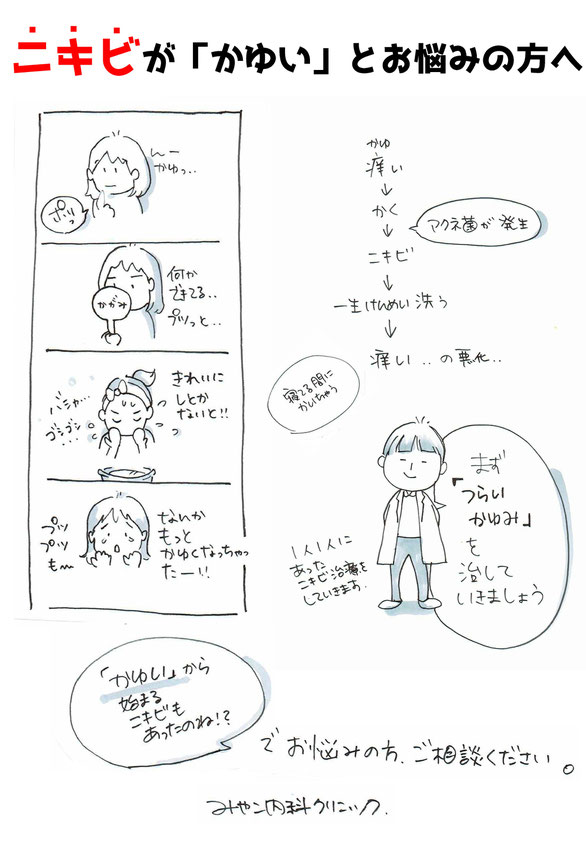 ニキビが「かゆい」とお悩みの方へ
んー
かゆっ..
ポリッ
かがみ
何か
できてる..
プツっと...
バシャ...
ゴシゴシ
きれいに
しとか
ないと!!
プツ
プツ
も〜
なんか
もっと
かゆくなっちゃっ
たー!!
かゆ
痒い
↓
かく
アクネ菌が発生
↓
ニキビ
↓
一生けんめい洗う
↓
痒い..の悪化..
寝てる間に
かいちゃう
まず
「つらい
かゆみ」
を
治して
いきましょう
1人1人に
あった
ニキビ治療を
していきます.
「かゆい」から
始まる
ニキビも
あったのね!?
でお悩みの方、ご相談ください。
みやこ内科クリニック.